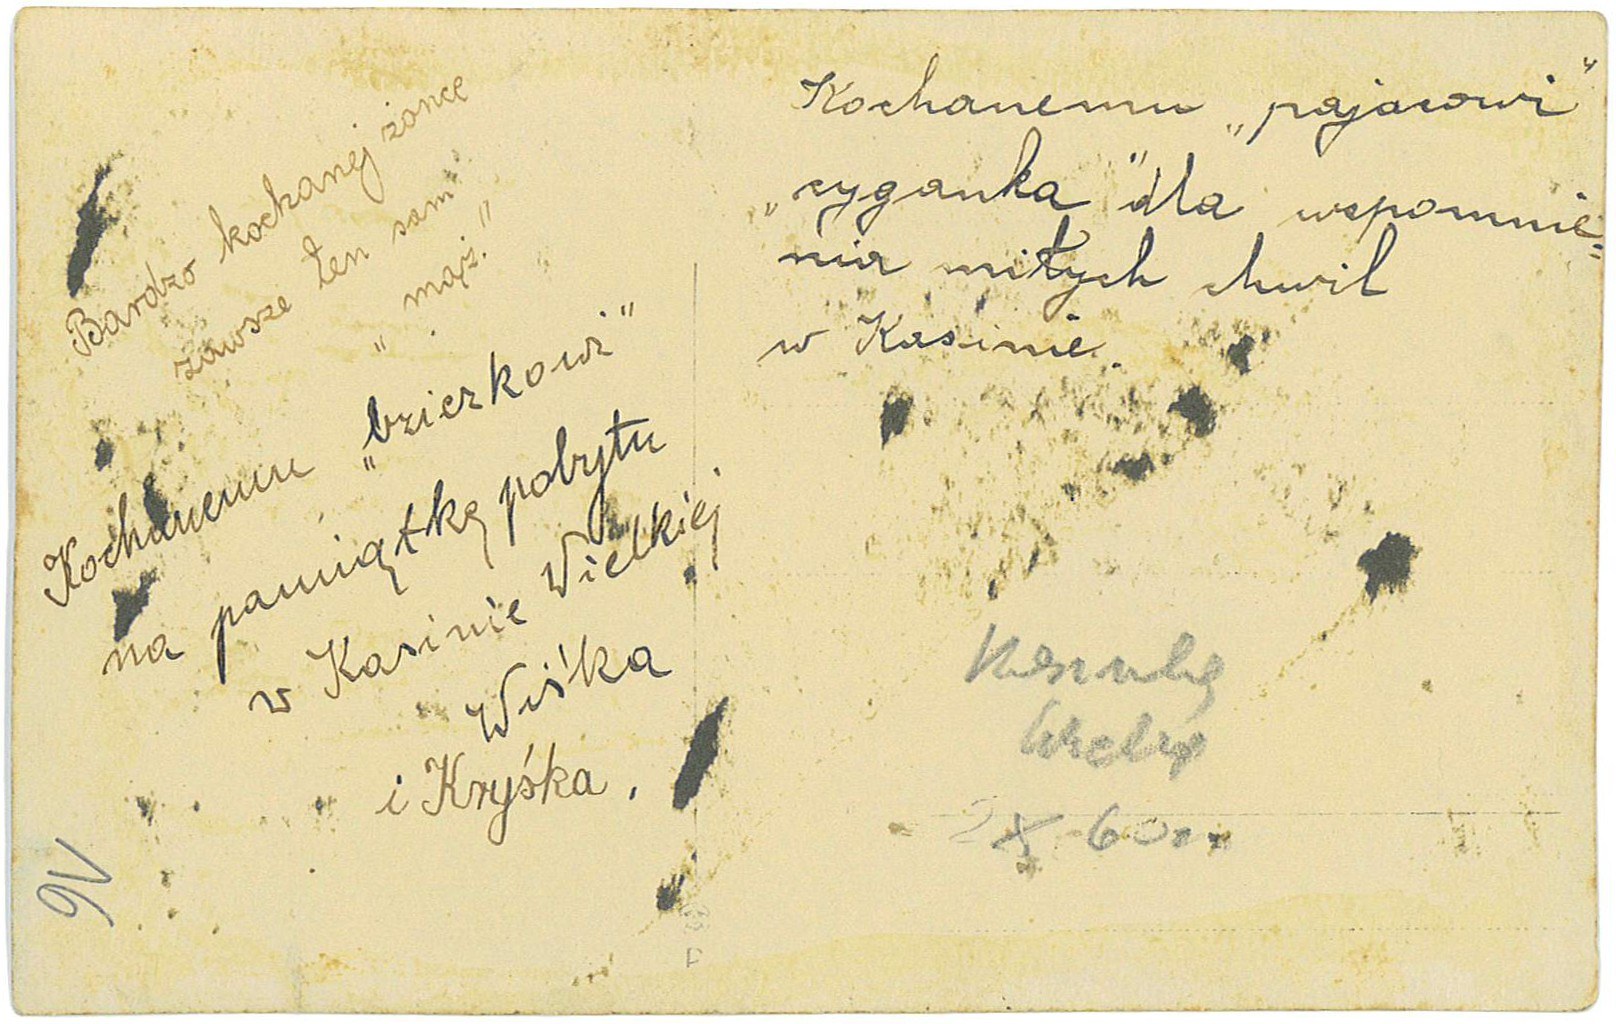 Bardzo kochanej żonce
zawsze ten sam
„mąż.”
Kochanemu „bziczkowi”
na pamiątkę pobytu
w Kasinie Wielkiej
Wiśka
i Kryśka.
Kochanemu „pajacowi”
„cyganka” dla wspomnie=
nia miłych chwil
w Kasinie.